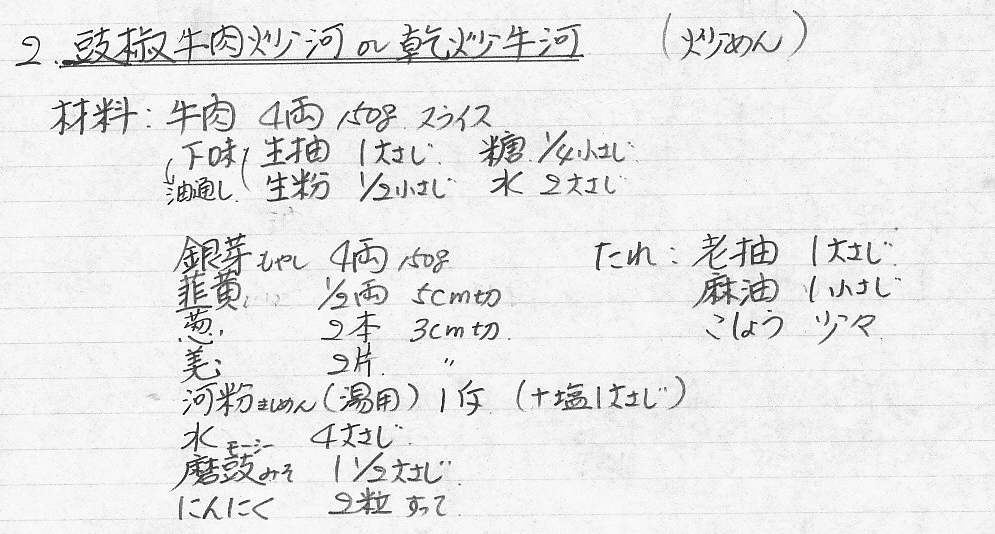 2. 豉椒牛肉炒河 or 乾炒牛河 (炒めん)
材料: 牛肉 4両 150g スライス
下味 生抽 1大さじ 糖 1/4小さじ
油通し 生粉 1/2小さじ 水 2大さじ
銀芽もやし 4両 150g たれ: 老抽 1大さじ
韮黄 1/2両 5cm切 麻油 1小さじ
葱 2本 3cm切 こしょう 少々
2片 〃
河粉きしめん (湯用) 1斤 (+塩1大さじ)
水 4大さじ
磨豉みそ モーシー 1 1/2大さじ
にんにく 2粒 すって